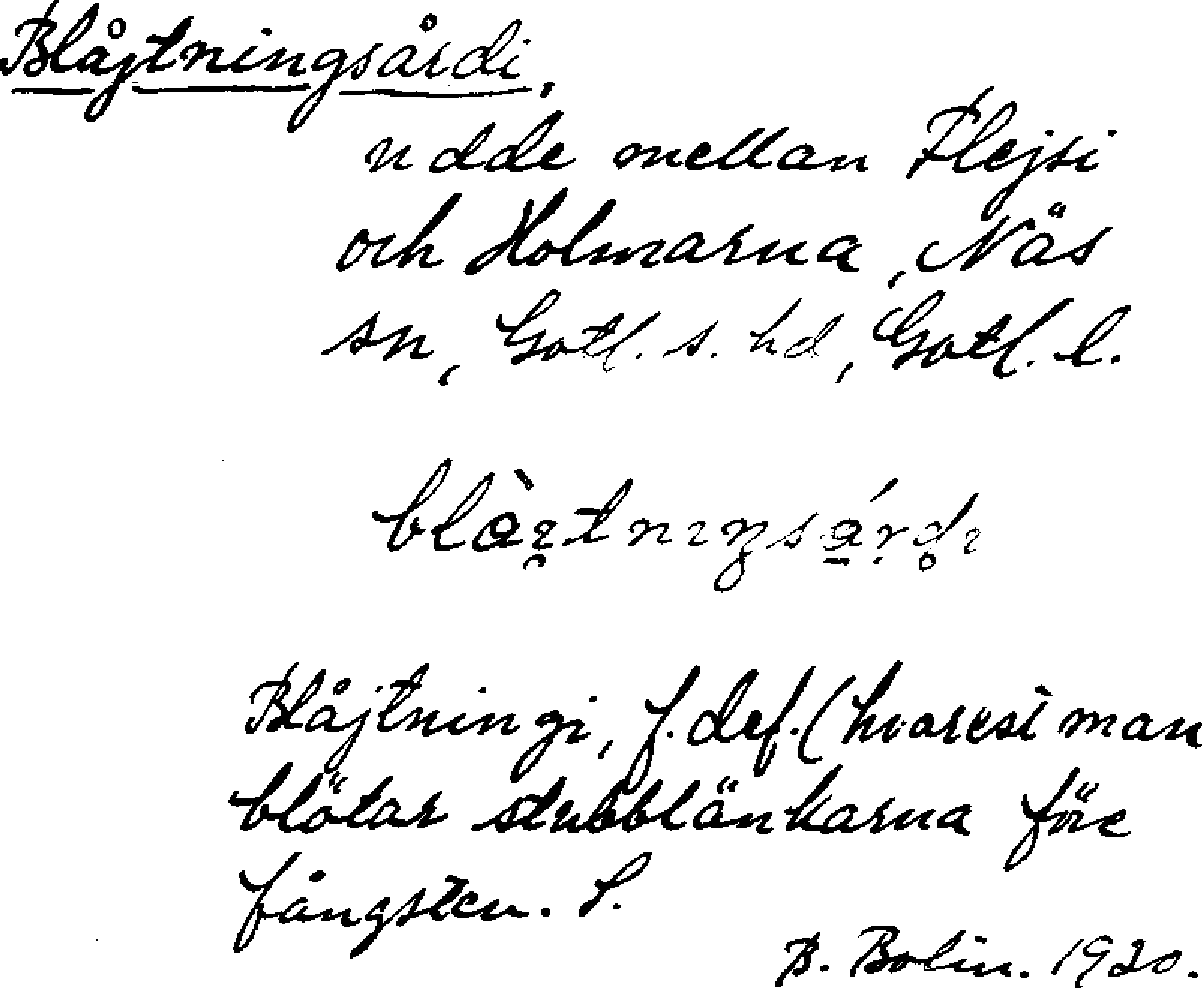 Blåjtningsårdi,
udde mellan Flejsi
och Holmarna, Näs
sn, Gotl. s. hd, Gotl. l.
Blåjtningi, f. def. (hvarest man
blötar stubblänkarna före
fångsten. S.
B. Bolin. 1920.